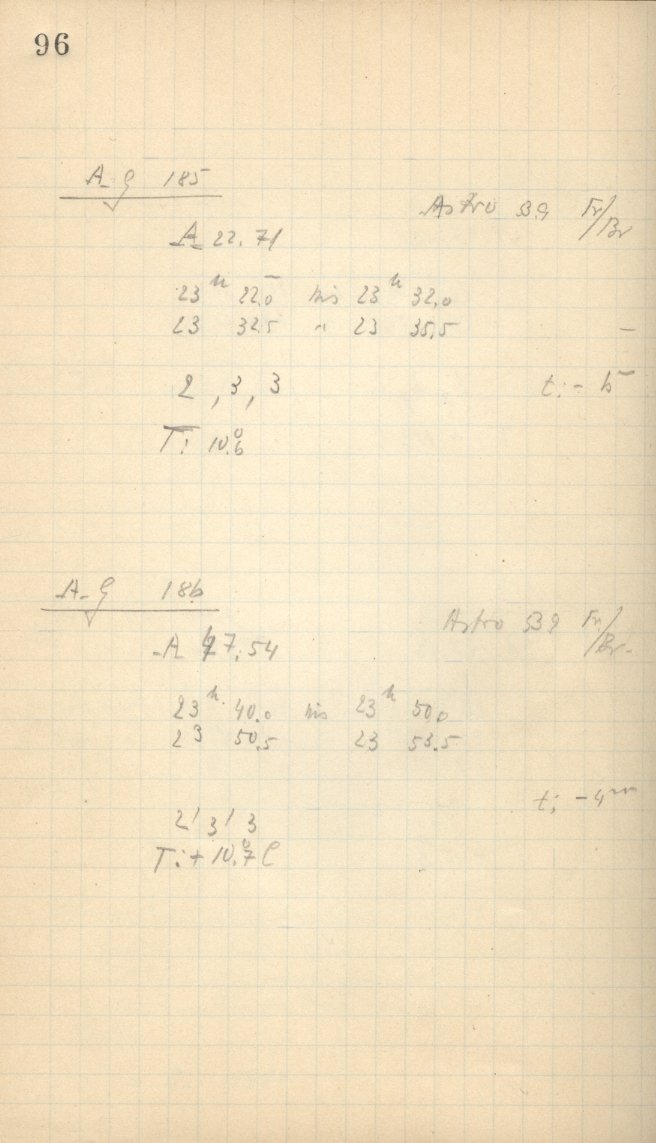 96
A-G 185
Astro 39 Fr/Br
A 22.71
23ʰ 22.0 bis 23ʰ 32.0
23 32.5 " 23 35.5
2, 3, 3
t: -
T: 10.°6
A-G 186
Astro 39 Fr/Br.
A 47.54
23ʰ 40.0 bis 23ʰ 50.0
23 50.5 23 53.5
t: -4ᵐ
2, 3, 3
T: +10.°7 C